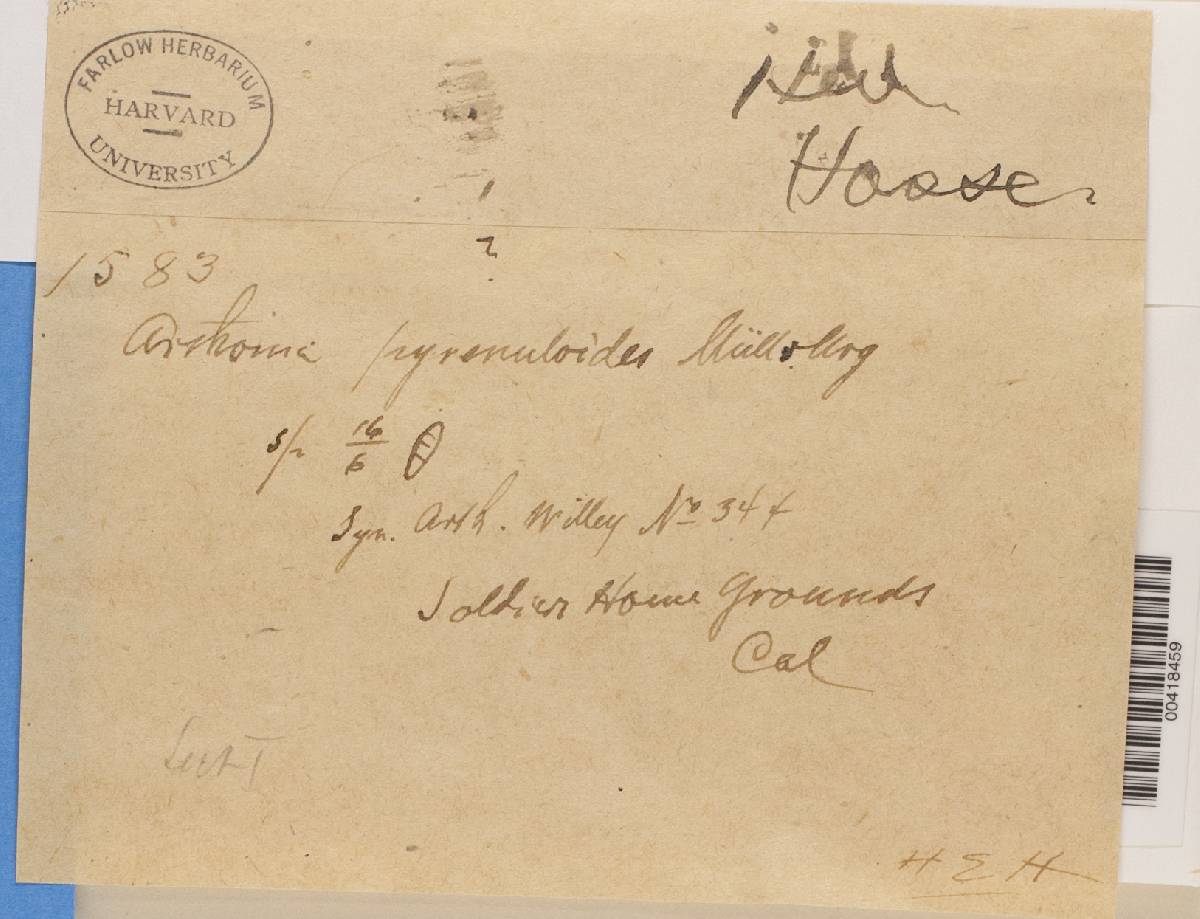 FARLOW HERBARIUM
HARVARD
UNIVERSITY
Hasse
?
1583
Arthonia pyrenuloides Müll. Arg
sp 16/6
Syn. Arth. Willey No 344
Soldier Home Grounds
Cal
Sect I
H E H
00418459